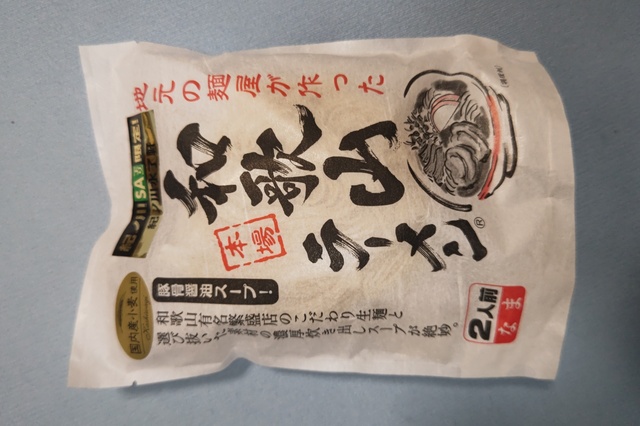 地元の麺屋が作った
紀ノ川SA 限定!
和歌山
ラーメン®
本場
豚骨醤油スープ!
国内産小麦使用
和歌山有名繁盛店のこだわり生麺と
選び抜いた素材の濃厚炊き出しスープが絶妙。
2人前
なま